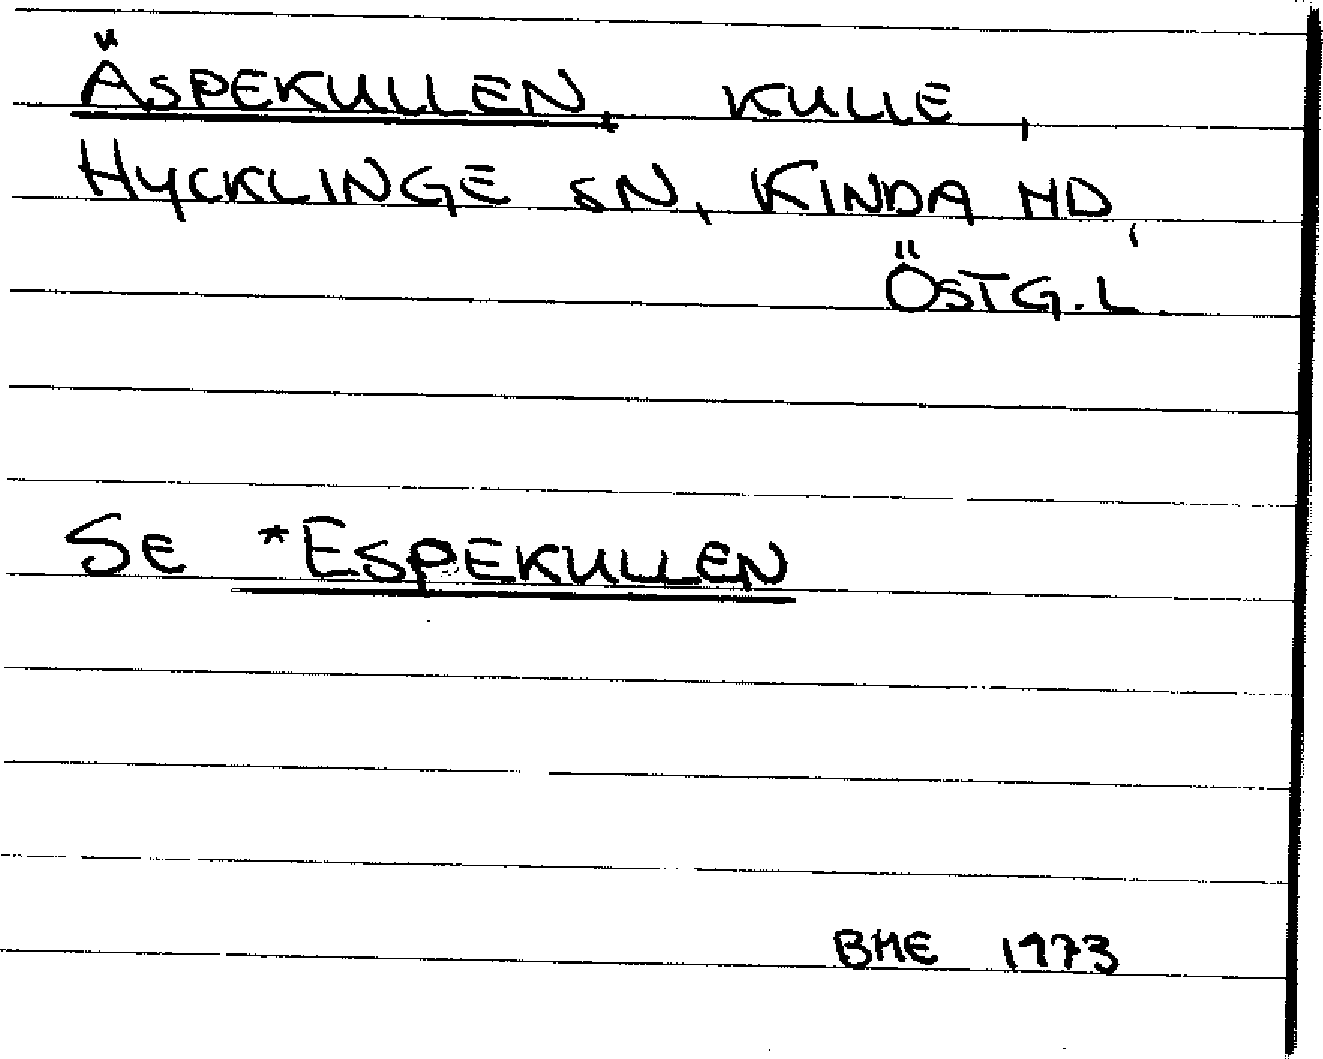 ÄSPEKULLEN, KULLE,
HYCKLINGE SN, KINDA HD,
ÖSTG.L.
SE *ESPEKULLEN
BHE 1973